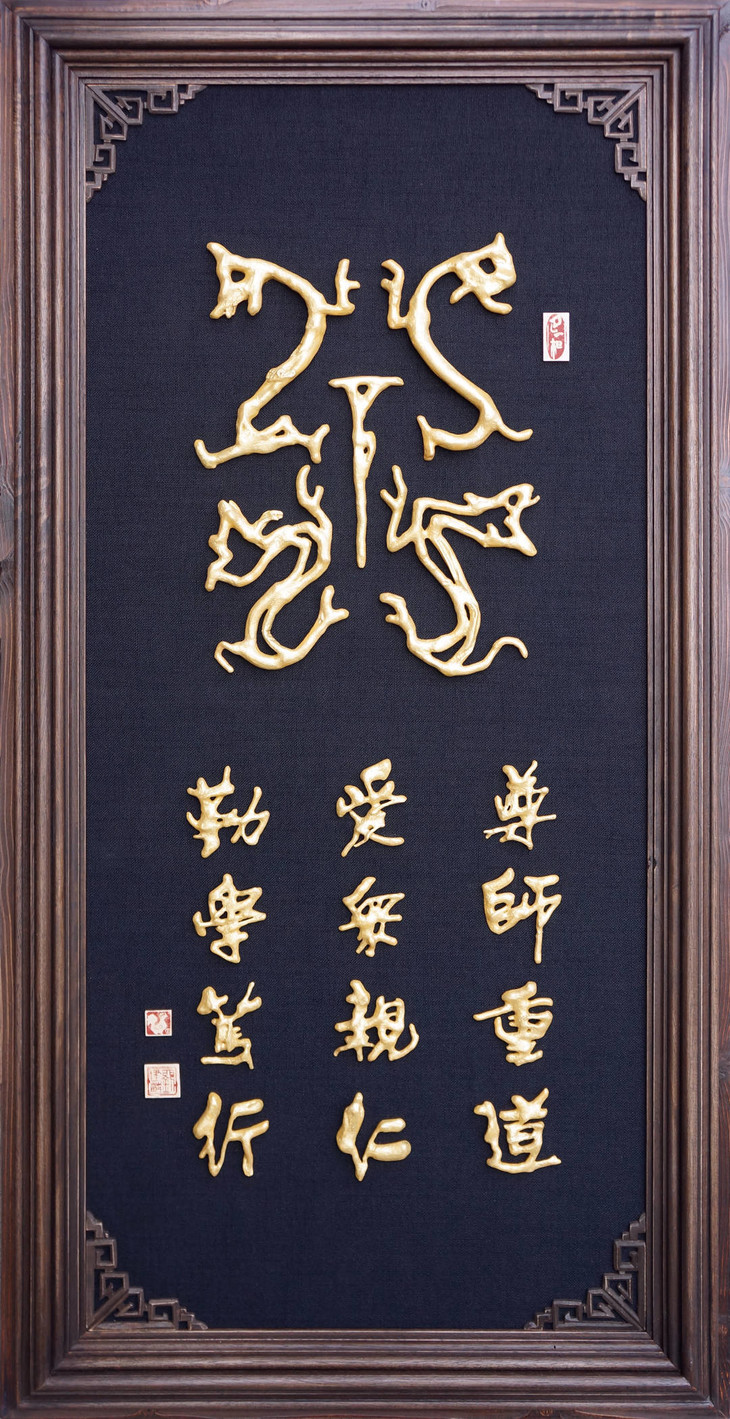 尊師重道
愛衆親仁
勤學篤行